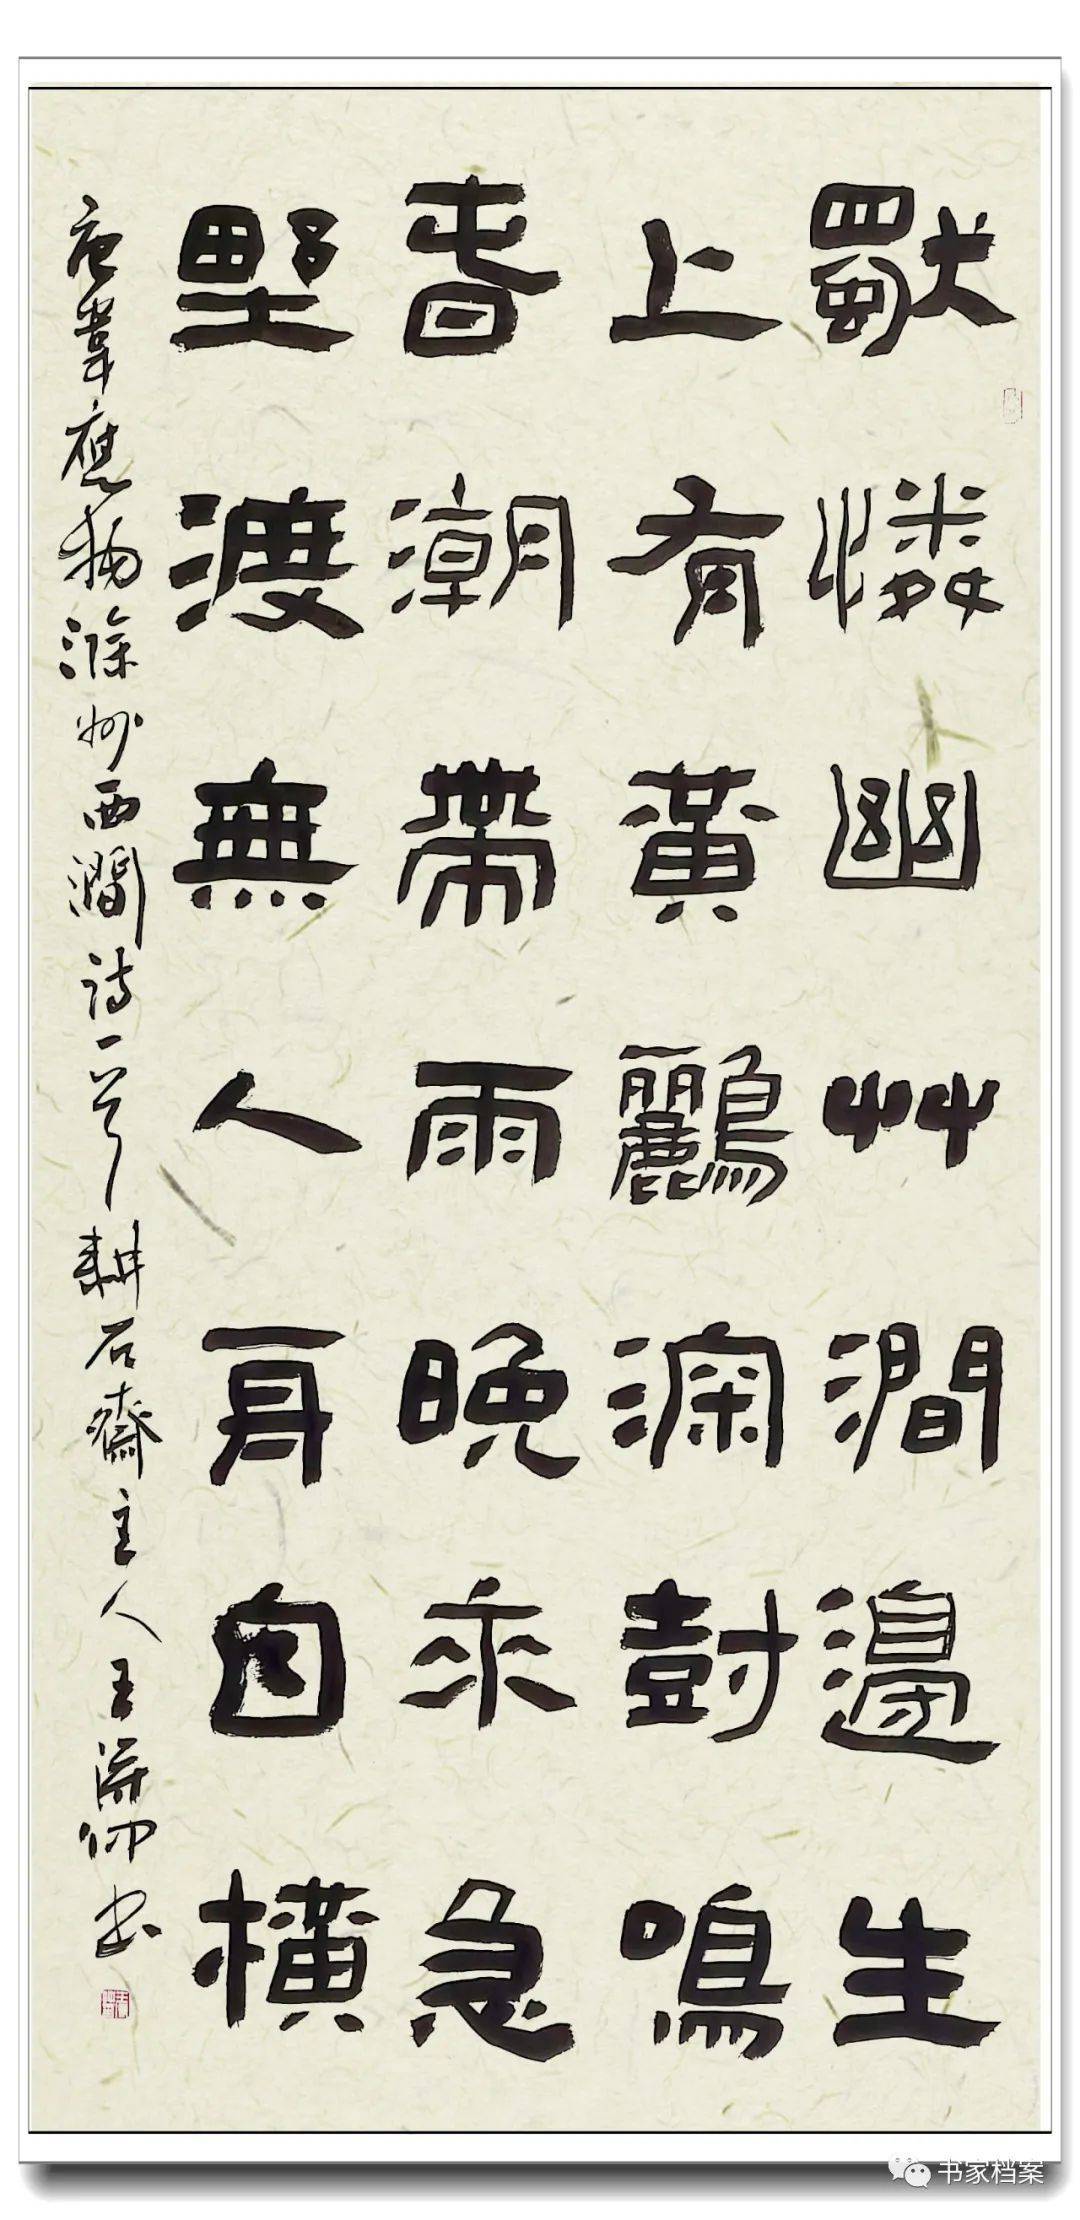 獨憐幽艸澗邊生
上有黃鸝深尌鳴
旾潮帶雨晚來急
野渡無人舟自橫
唐韋應物滁州西澗诗一首 耕石齋主人王书
书家档案